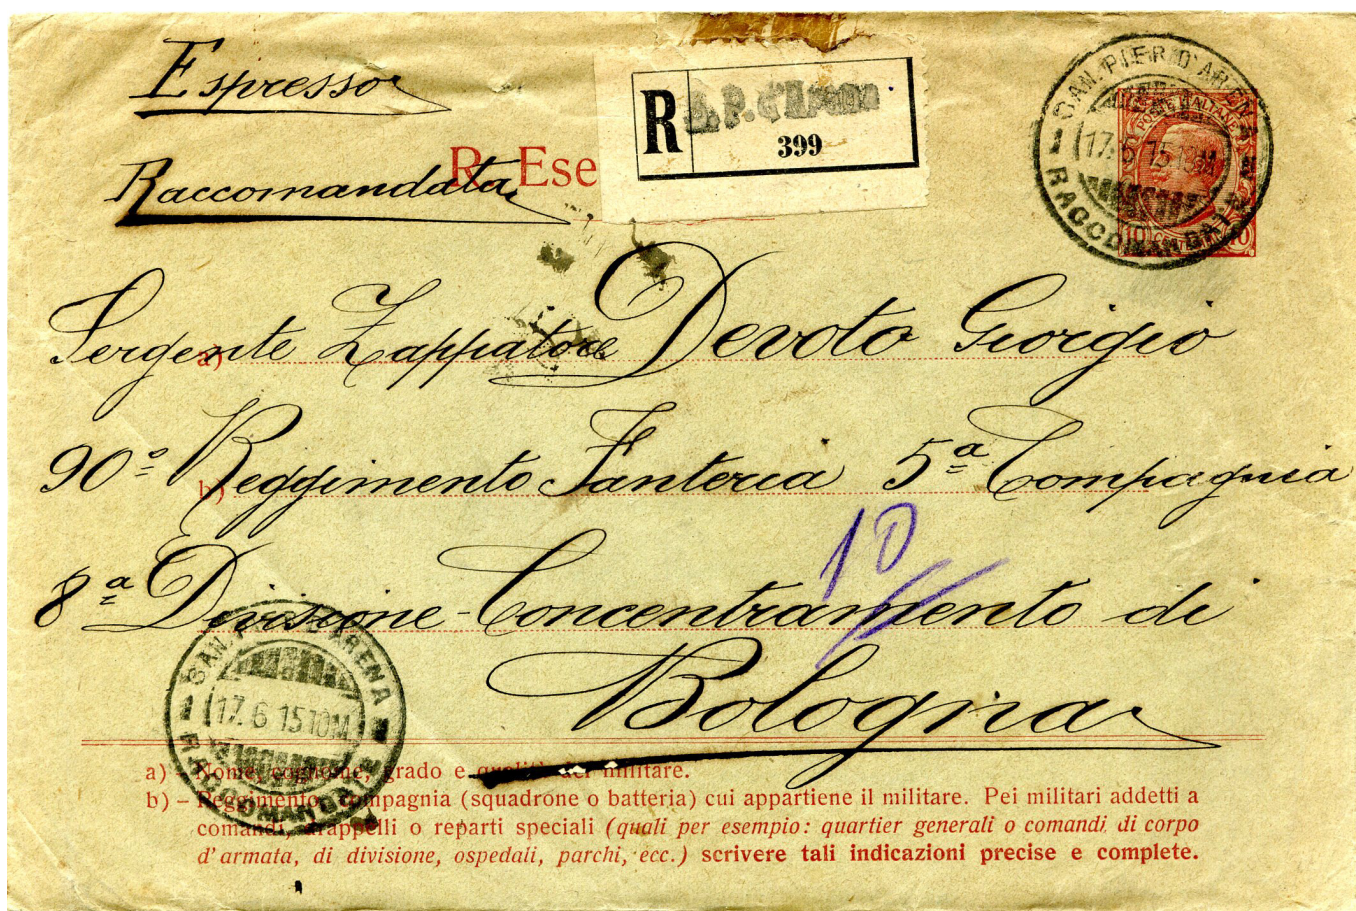 Espresso
Raccomandata
R. Ese
R S. P. d'Arena
399
SAN. PIER D'ARENA
17. 6 15 10M
RACCOMANDATE
POSTE ITALIANE
10 10
Sergente Zappatore Devoto Giorgio
a)
90º Reggimento Fanteria 5ª Compagnia
b)
10
8ª Divisione - Concentramento di
Bologna
SAN. PIER D'ARENA
17. 6 15 10M
RACCOMANDATE
a) – Nome, cognome, grado e qualità del militare.
b) – Reggimento, compagnia (squadrone o batteria) cui appartiene il militare. Pei militari addetti a
comandi, drappelli o reparti speciali (quali per esempio: quartier generali o comandi di corpo
d'armata, di divisione, ospedali, parchi, ecc.) scrivere tali indicazioni precise e complete.